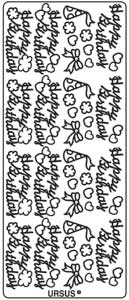 Happy
Birthday
Happy
Birthday
Happy
Birthday
Happy
Birthday
Happy
Birthday
Happy
Birthday
Happy
Birthday
Happy
Birthday
URSUS ®